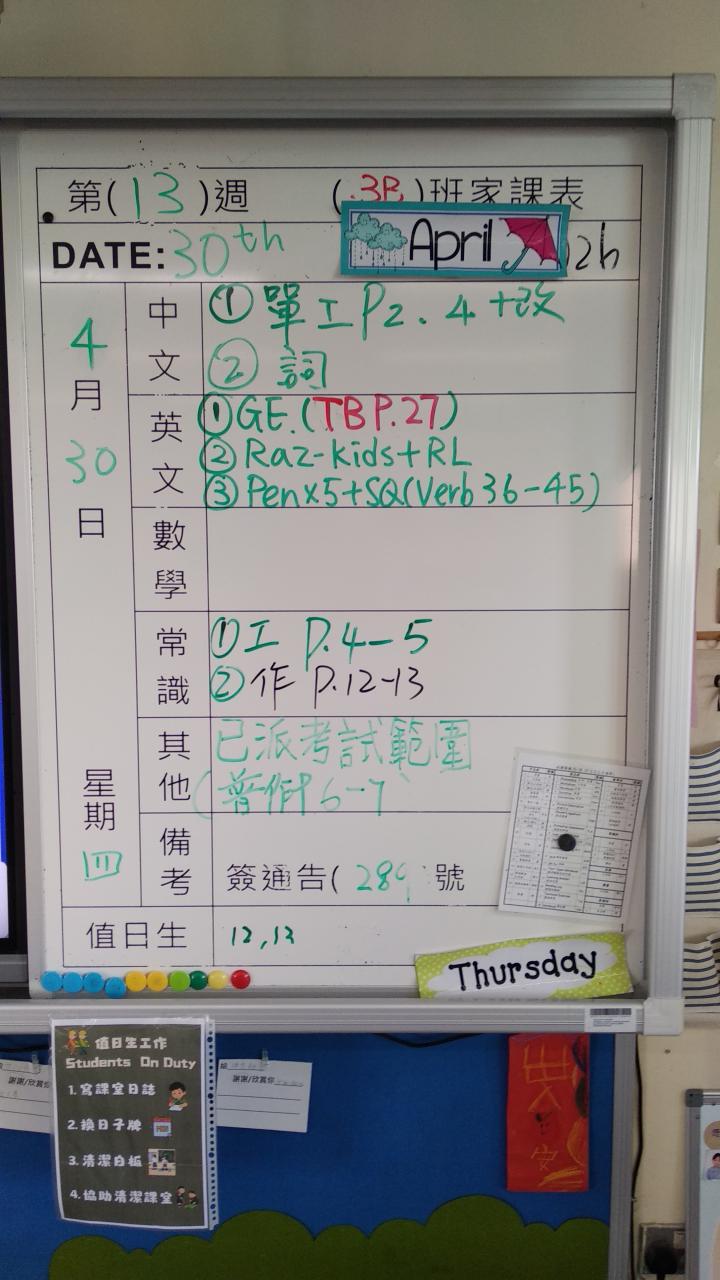 第(13)週 (3B)班家課表
DATE: 30th April
4月30日 星期四
中文
① 單工P2.4+改
② 詞
英文
① GE.(TBP.27)
② Raz-kids+RL
③ Pen×5+SQ(Verb 36-45)
數學
常識
① 工 P.4-5
② 作 P.12-13
其他
已派考試範圍
6-7
備考
簽通告( 289 號
值日生
12,13
Thursday
值日生工作
Students On Duty
1.寫課室日誌
2.換日子牌
3.清潔白板
4.協助清潔課室
謝謝/欣賞你
謝謝/欣賞你